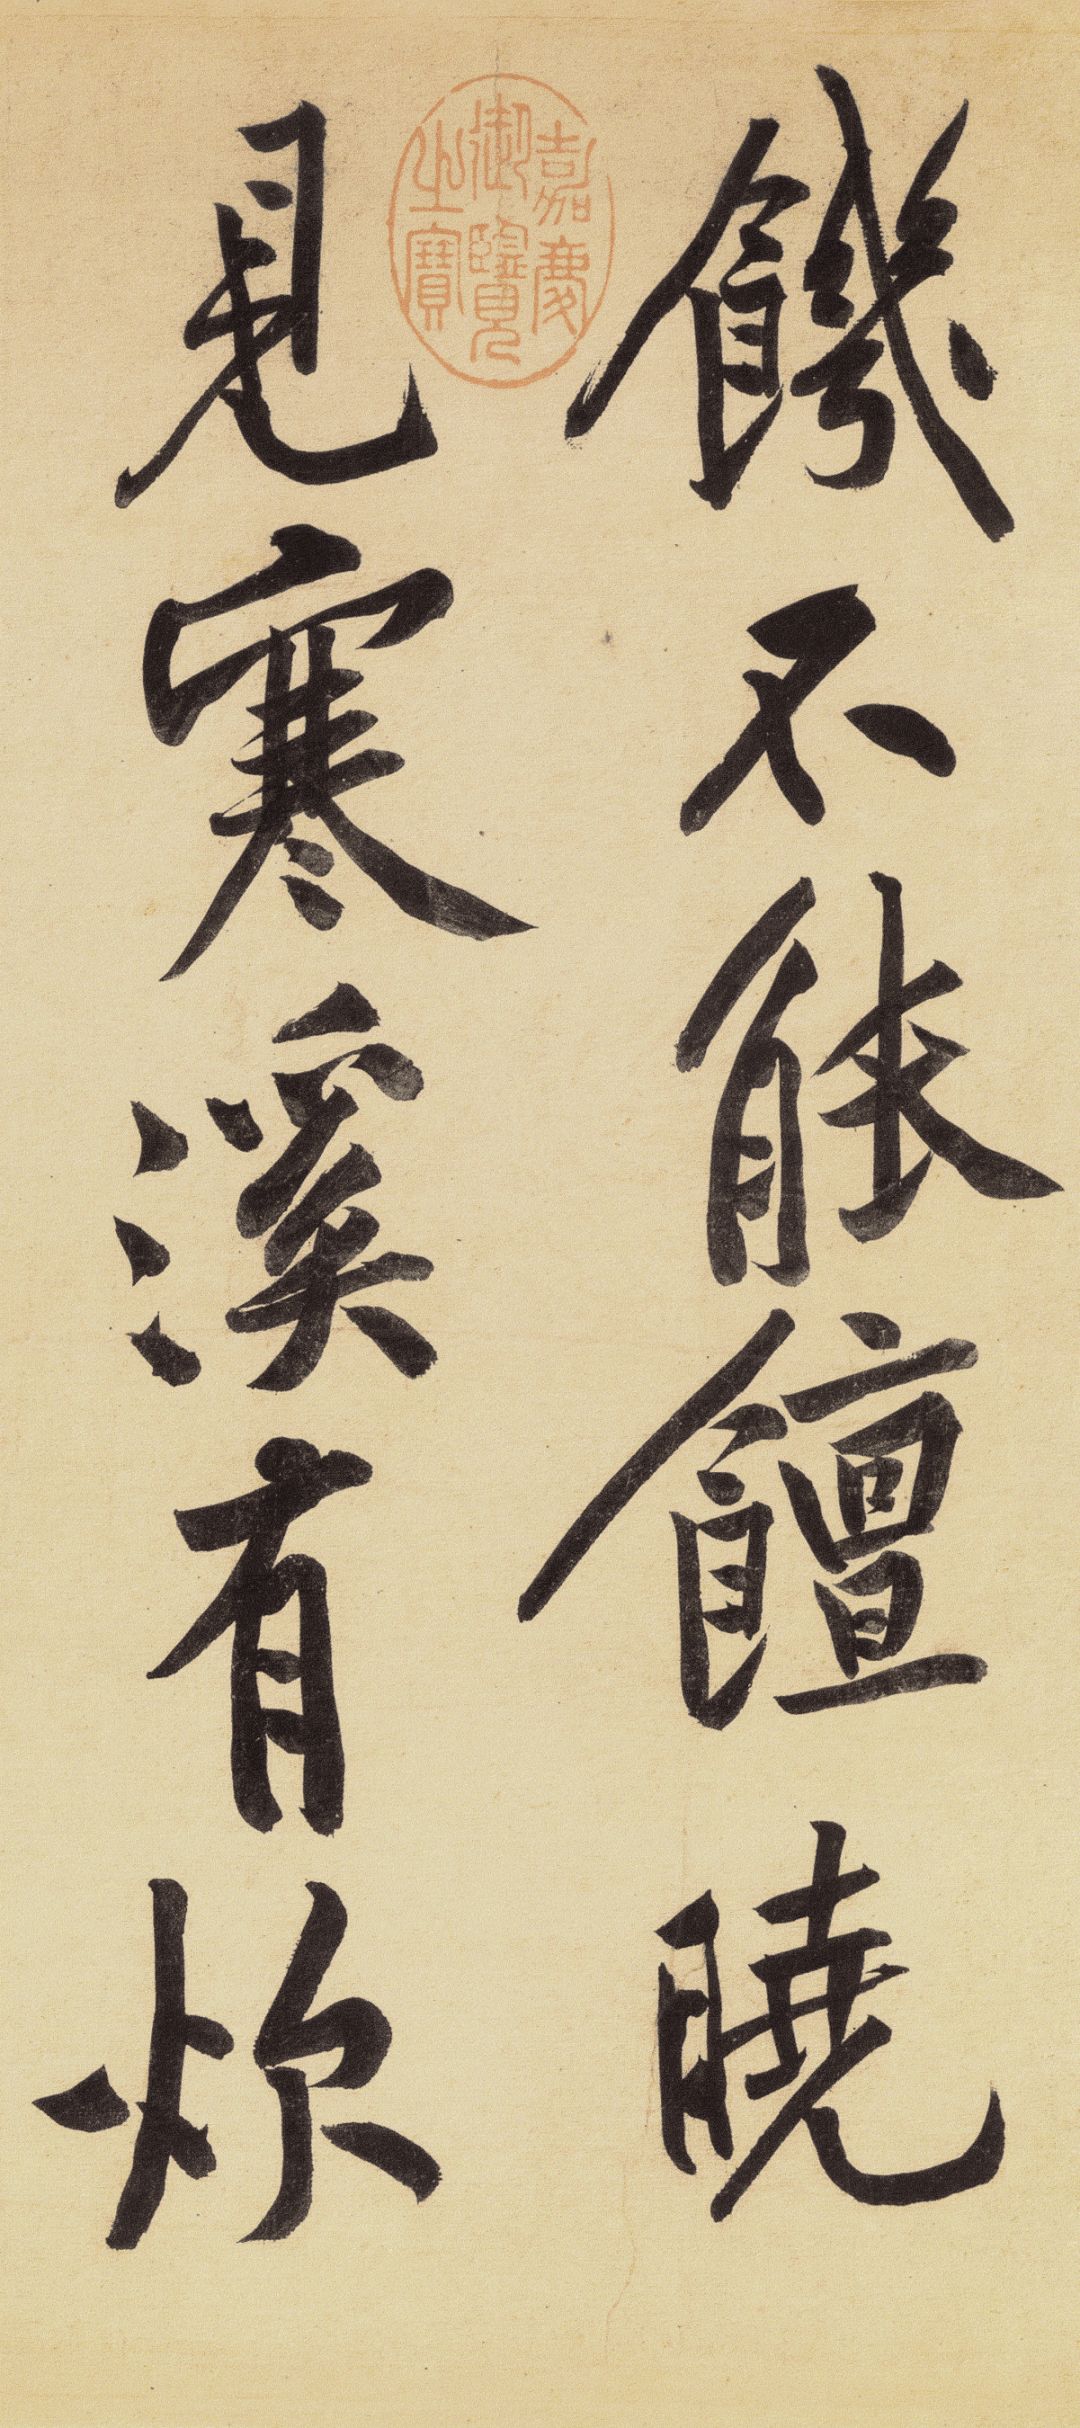 饑不能饘曉
見寒溪有炊
嘉慶
御覽
之寶